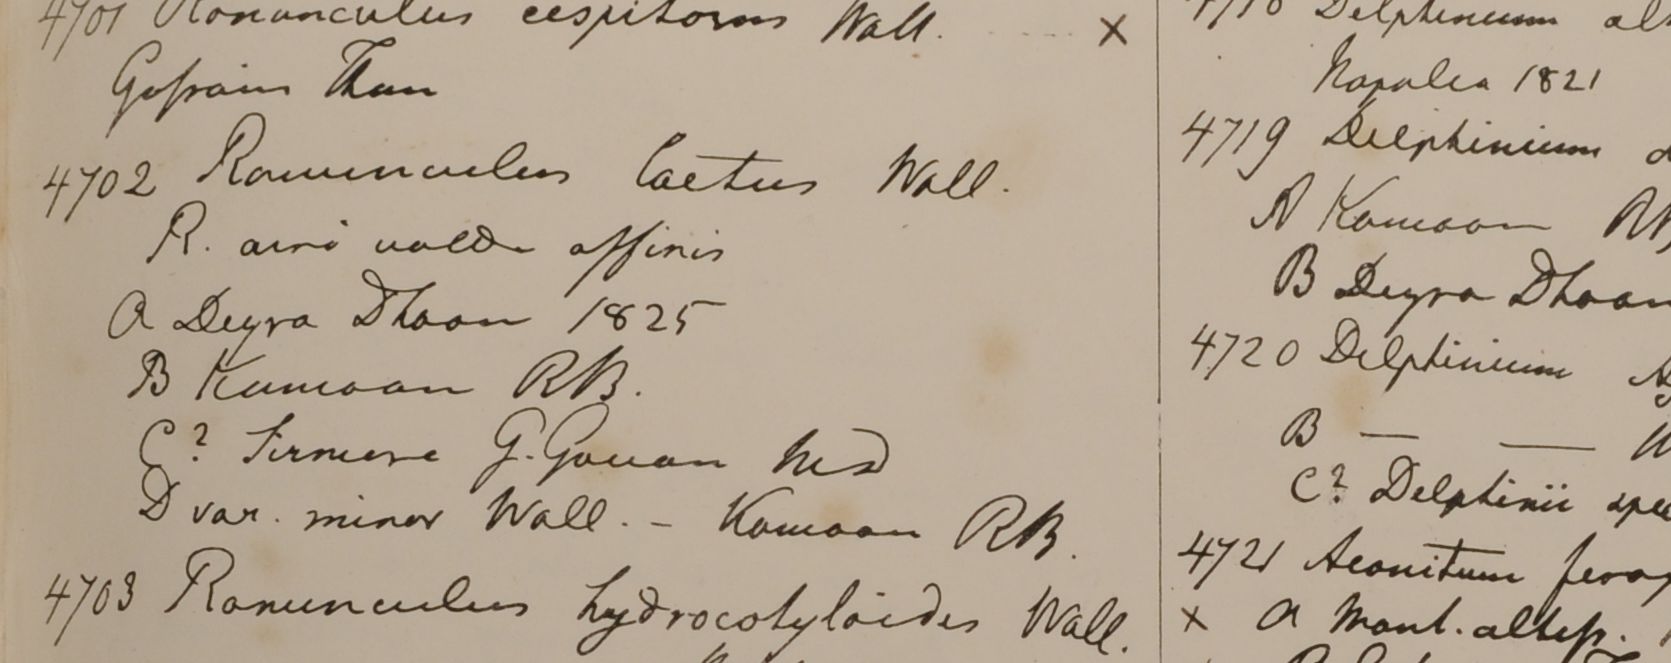 4701 Ranunculus cespitosus Wall. ×
Gossain Than
4702 Ranunculus laetus Wall.
R. acri valde affinis
A Deyra Dhoon 1825
B Kumaon RB.
C? Sirmore G. Govan
D var. minor Wall. – Kamaon RB.
4703 Ranunculus hydrocotyloides Wall.
4718 Delphinium alt
Napalia 1821
4719 Delphinium
A Kamaon RB
B Deyra Dhoon
4720 Delphinium
B — —
C? Delphinii spec
4721 Aconitum ferox
× A Mont. altiss.